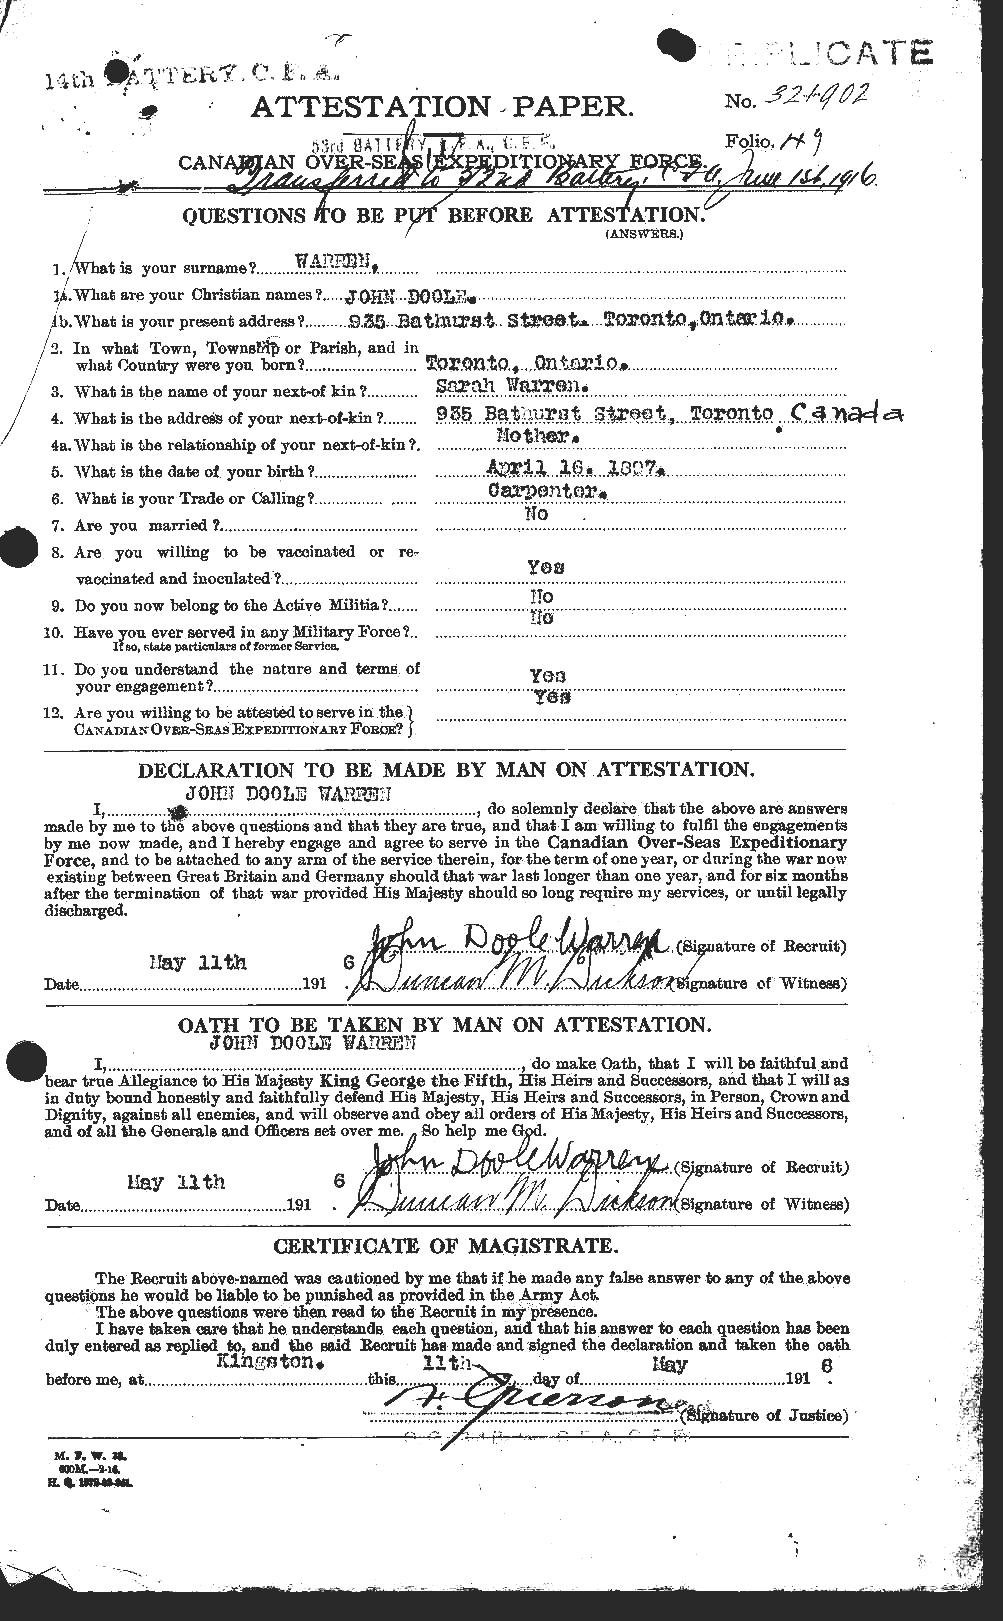 DUPLICATE
14th BATTERY. C. F. A.
ATTESTATION PAPER.
No. 321902
53rd BATTERY, C.F.A., C.E.F.
Folio. 49
CANADIAN OVER-SEAS EXPEDITIONARY FORCE.
Transferred to 32nd Battery, CFA. June 1st, 1916.
QUESTIONS TO BE PUT BEFORE ATTESTATION.
(ANSWERS.)
1. What is your surname? WARREN,
1a. What are your Christian names? JOHN DOOLE.
1b. What is your present address? 935 Bathurst Street. Toronto, Ontario.
2. In what Town, Township or Parish, and in
what Country were you born? Toronto, Ontario.
3. What is the name of your next-of kin? Sarah Warren.
4. What is the address of your next-of-kin? 935 Bathurst Street, Toronto Canada
4a. What is the relationship of your next-of-kin? Mother.
5. What is the date of your birth? April 16. 1897.
6. What is your Trade or Calling? Carpenter.
7. Are you married? No
8. Are you willing to be vaccinated or re-
vaccinated and inoculated? Yes
9. Do you now belong to the Active Militia? No
10. Have you ever served in any Military Force? No
If so, state particulars of former Service.
11. Do you understand the nature and terms of
your engagement? Yes
12. Are you willing to be attested to serve in the Yes
CANADIAN OVER-SEAS EXPEDITIONARY FORCE?
DECLARATION TO BE MADE BY MAN ON ATTESTATION.
JOHN DOOLE WARREN
I, , do solemnly declare that the above are answers
made by me to the above questions and that they are true, and that I am willing to fulfil the engagements
by me now made, and I hereby engage and agree to serve in the Canadian Over-Seas Expeditionary
Force, and to be attached to any arm of the service therein, for the term of one year, or during the war now
existing between Great Britain and Germany should that war last longer than one year, and for six months
after the termination of that war provided His Majesty should so long require my services, or until legally
discharged.
John Doole Warren (Signature of Recruit)
Date May 11th 1916. Duncan M. Dickson (Signature of Witness)
OATH TO BE TAKEN BY MAN ON ATTESTATION.
JOHN DOOLE WARREN
I, , do make Oath, that I will be faithful and
bear true Allegiance to His Majesty King George the Fifth, His Heirs and Successors, and that I will as
in duty bound honestly and faithfully defend His Majesty, His Heirs and Successors, in Person, Crown and
Dignity, against all enemies, and will observe and obey all orders of His Majesty, His Heirs and Successors,
and of all the Generals and Officers set over me. So help me God.
John Doole Warren (Signature of Recruit)
Date May 11th 1916. Duncan M. Dickson (Signature of Witness)
CERTIFICATE OF MAGISTRATE.
The Recruit above-named was cautioned by me that if he made any false answer to any of the above
questions he would be liable to be punished as provided in the Army Act.
The above questions were then read to the Recruit in my presence.
I have taken care that he understands each question, and that his answer to each question has been
duly entered as replied to, and the said Recruit has made and signed the declaration and taken the oath
before me, at Kingston. this 11th day of May 1916.
(Signature of Justice)
M. F. W. 23.
600M.—2-16.